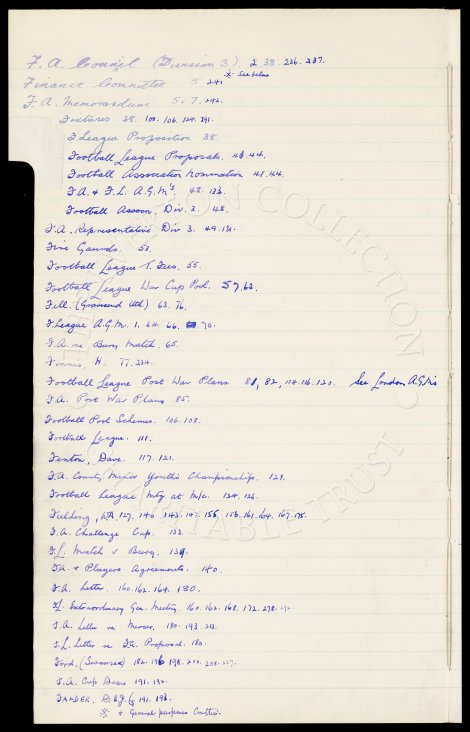 F.A. Council (Division 3) 2 38. 236. 237.
Finance Committee 5. 241 ※ See below
F.A. Memorandum 5. 7. 242.
Fixtures 38. 100. 106. 124. 291.
F League Proposition 38.
Football League Proposals. 43. 44.
Football Association Nomination 48. 144.
F.A. & F.L. A.G.M's. 48. 133.
Football Assocn. Div 3. 48.
F.A. Representative Div 3. 49. 131.
Fire Guards. 53.
Football League T. Fees. 55.
Football League War Cup Pool. 57. 63.
Fell. (Gravesend Utd) 63. 76.
F. League A.G.M. 1. 64. 66. 70.
F.A. re Bury Match. 65.
Finnis, H. 77. 234.
Football League Post War Plans. 81, 82, 114. 116. 120. See London A.G.M's
F.A. Post War Plans 85.
Football Pool Schemes. 106. 108.
Football League. 111.
Fenton, Dave. 117. 121.
F.A. County Minor Youth's Championship. 121.
Football League Mtg at M/c. 124. 126.
Fielding, WA. 127. 140. 143. 147. 155, 156. 161. 164. 167. 175.
F.A. Challenge Cup. 133.
F.L. Match v Bury. 139.
F.A. & Players Agreements. 140.
F.A. Letter. 160. 162. 164. 180.
F.L. Extraordinary Gen. Meeting. 160. 162. 168. 172. 278.
F.A. Letter re Mercer. 180. 193. 213.
F.L. Letter re F.A. Proposal. 180.
Ford, (Swansea) 182. 196 198. 202. 208. 227.
F.A. Cup Draw 191. 192.
191. 193.
※ & General purposes Cmttee.
COLLECTION
CHARITABLE TRUST